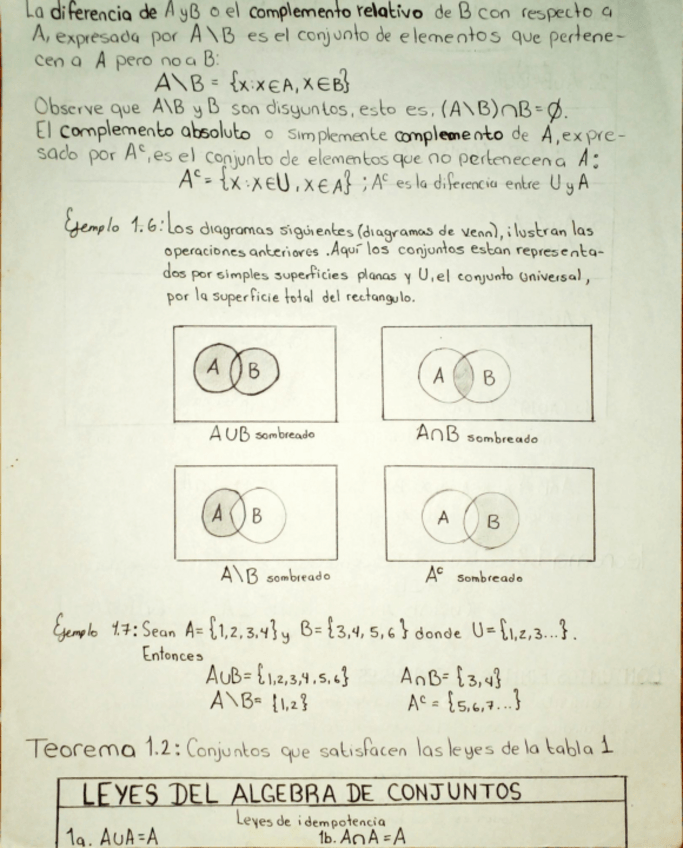 La diferencia de A y B o el complemento relativo de B con respecto a
A, expresada por A\B es el conjunto de elementos que pertene-
cen a A pero no a B:
A\B = {x:x∈A, x∈B}
Observe que A\B y B son disyuntos, esto es, (A\B)∩B=∅.
El complemento absoluto o simplemente complemento de A, expre-
sado por Aᶜ, es el conjunto de elementos que no pertenecen a A:
Aᶜ= {x:x∈U, x∈A} ; Aᶜ es la diferencia entre U y A
Ejemplo 1.6: Los diagramas siguientes (diagramas de venn), ilustran las
operaciones anteriores. Aquí los conjuntos estan representa-
dos por simples superficies planas y U, el conjunto universal,
por la superficie total del rectangulo.
A B A B
A∪B sombreado A∩B sombreado
A B A B
A\B sombreado Aᶜ sombreado
Ejemplo 1.7: Sean A= {1,2,3,4} y B= {3,4,5,6} donde U= {1,2,3...}.
Entonces
A∪B= {1,2,3,4,5,6} A∩B= {3,4}
A\B= {1,2} Aᶜ = {5,6,7...}
Teorema 1.2: Conjuntos que satisfacen las leyes de la tabla 1
LEYES DEL ALGEBRA DE CONJUNTOS
Leyes de idempotencia
1a. A∪A=A 1b. A∩A=A